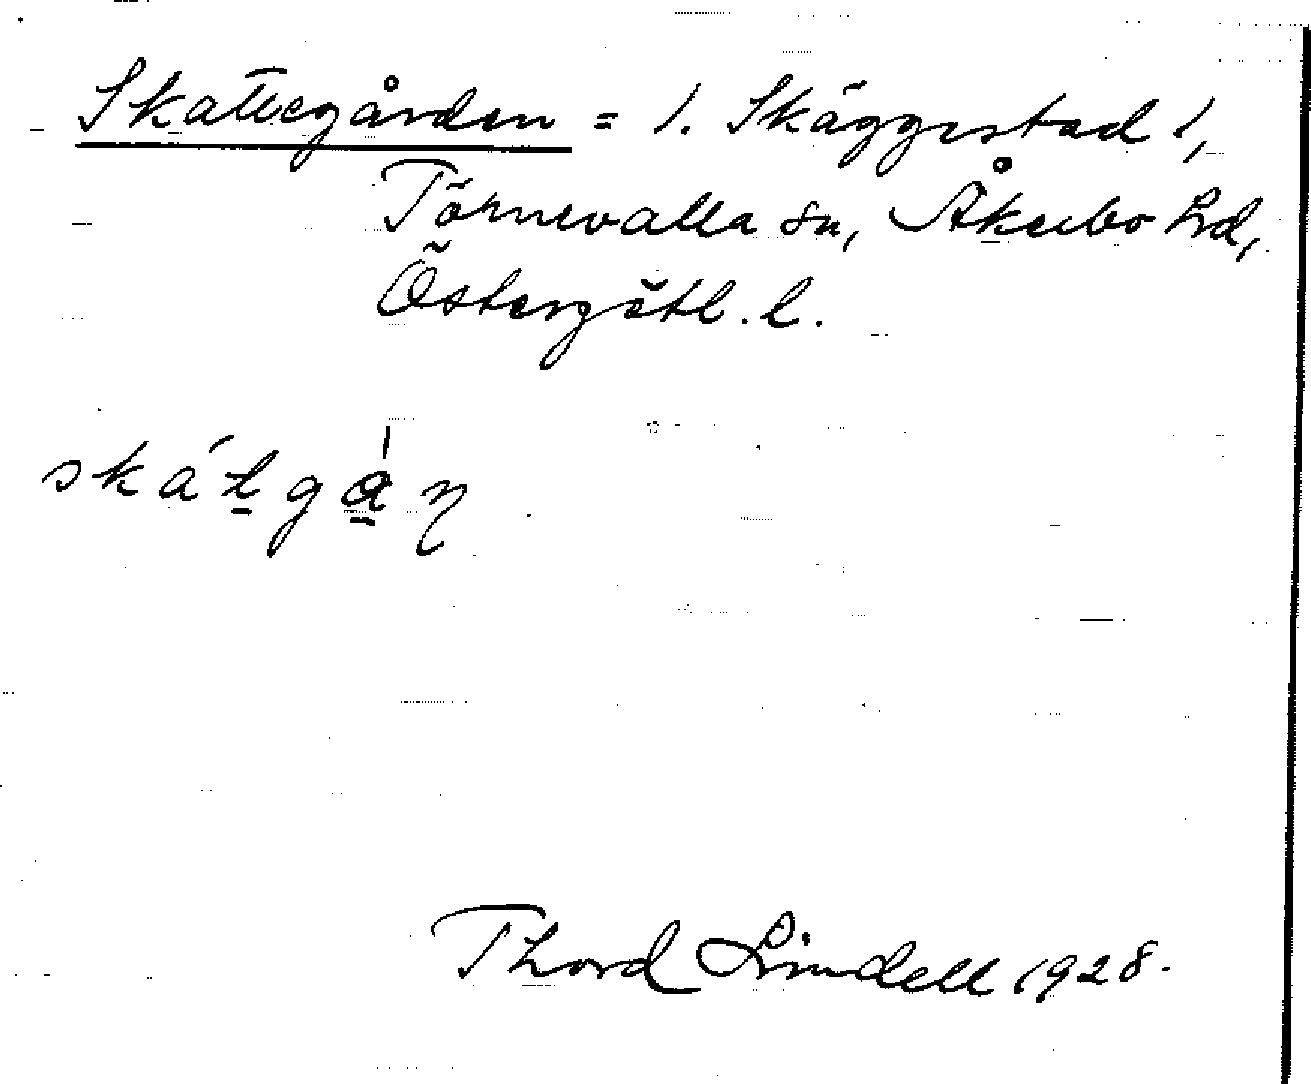 Skattegården = 1. Skäggestad 1,
Törnevalla sn, Åkerbo hd,
Östergötl. l.
skátgån
Thord Lindell 1928.